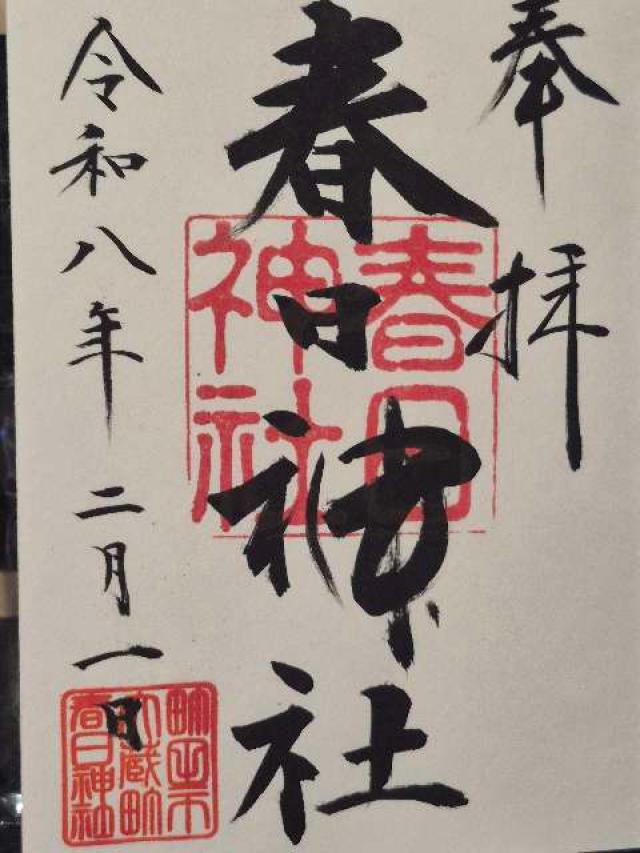 奉拝
春日神社
春日
神社
令和八年 二月一日
町田市
大蔵町
春日神社